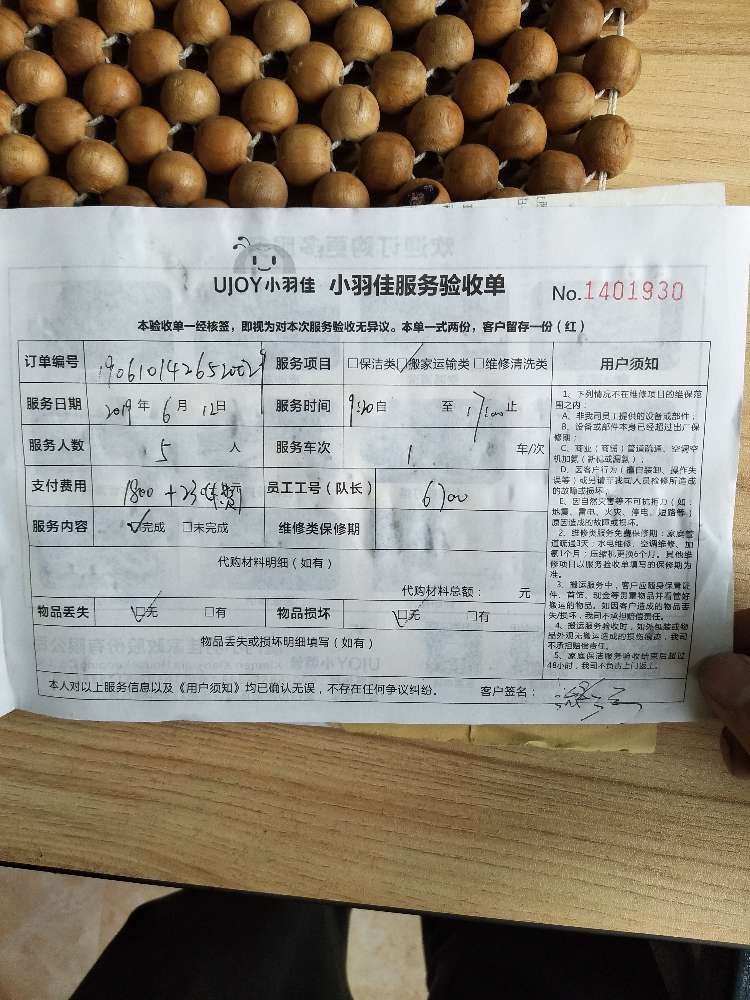 UJOY小羽佳 小羽佳服务验收单 No.1401930
本验收单一经核签，即视为对本次服务验收无异议。本单一式两份，客户留存一份（红）
订单编号 服务项目 □保洁类 □搬家运输类 □维修清洗类 用户须知
服务日期 2019年 6月 12日 服务时间 9:20自 至 17:00止
服务人数 5 人 服务车次 1 车/次
支付费用 1800+23 元 员工工号（队长） 6700
服务内容 □完成 □未完成 维修类保修期
代购材料明细（如有）
代购材料总额： 元
物品丢失 □无 □有 物品损坏 □无 □有
物品丢失或损坏明细填写（如有）
本人对以上服务信息以及《用户须知》均已确认无误，不存在任何争议纠纷。 客户签名：
1、下列情况不在维修项目的维保范
围之内：
A、非我司员工提供的设备或部件；
B、设备或部件本身已经超过出产保
修期；
C、商业（商铺）管道疏通、空调空
机加氨（新机或漏氨）；
D、因客户行为（擅自装卸、操作失
误等）或另请非我司人员检修所造成
的故障或损坏；
E、因自然灾害等不可抗拒力（如：
地震、雷电、火灾、停电、短路等）
原因造成的故障或损坏。
2、维修类服务免费保修期：家庭管
道疏通3天；水电维修、空调维修、加
氨1个月；压缩机更换6个月。其他维
修项目以服务验收单填写的保修期为
准。
3、搬运服务中，客户应随身保管证
件、首饰、现金等贵重物品并看管好
搬运的物品。如因客户造成的物品丢
失/损坏，我司不承担赔偿责任。
4、搬运服务验收时，如外包装或物
品外观无搬运造成的损伤痕迹，我司
不承担赔偿责任。
5、家庭保洁服务验收结束后超过
48小时，我司不负责上门返工。